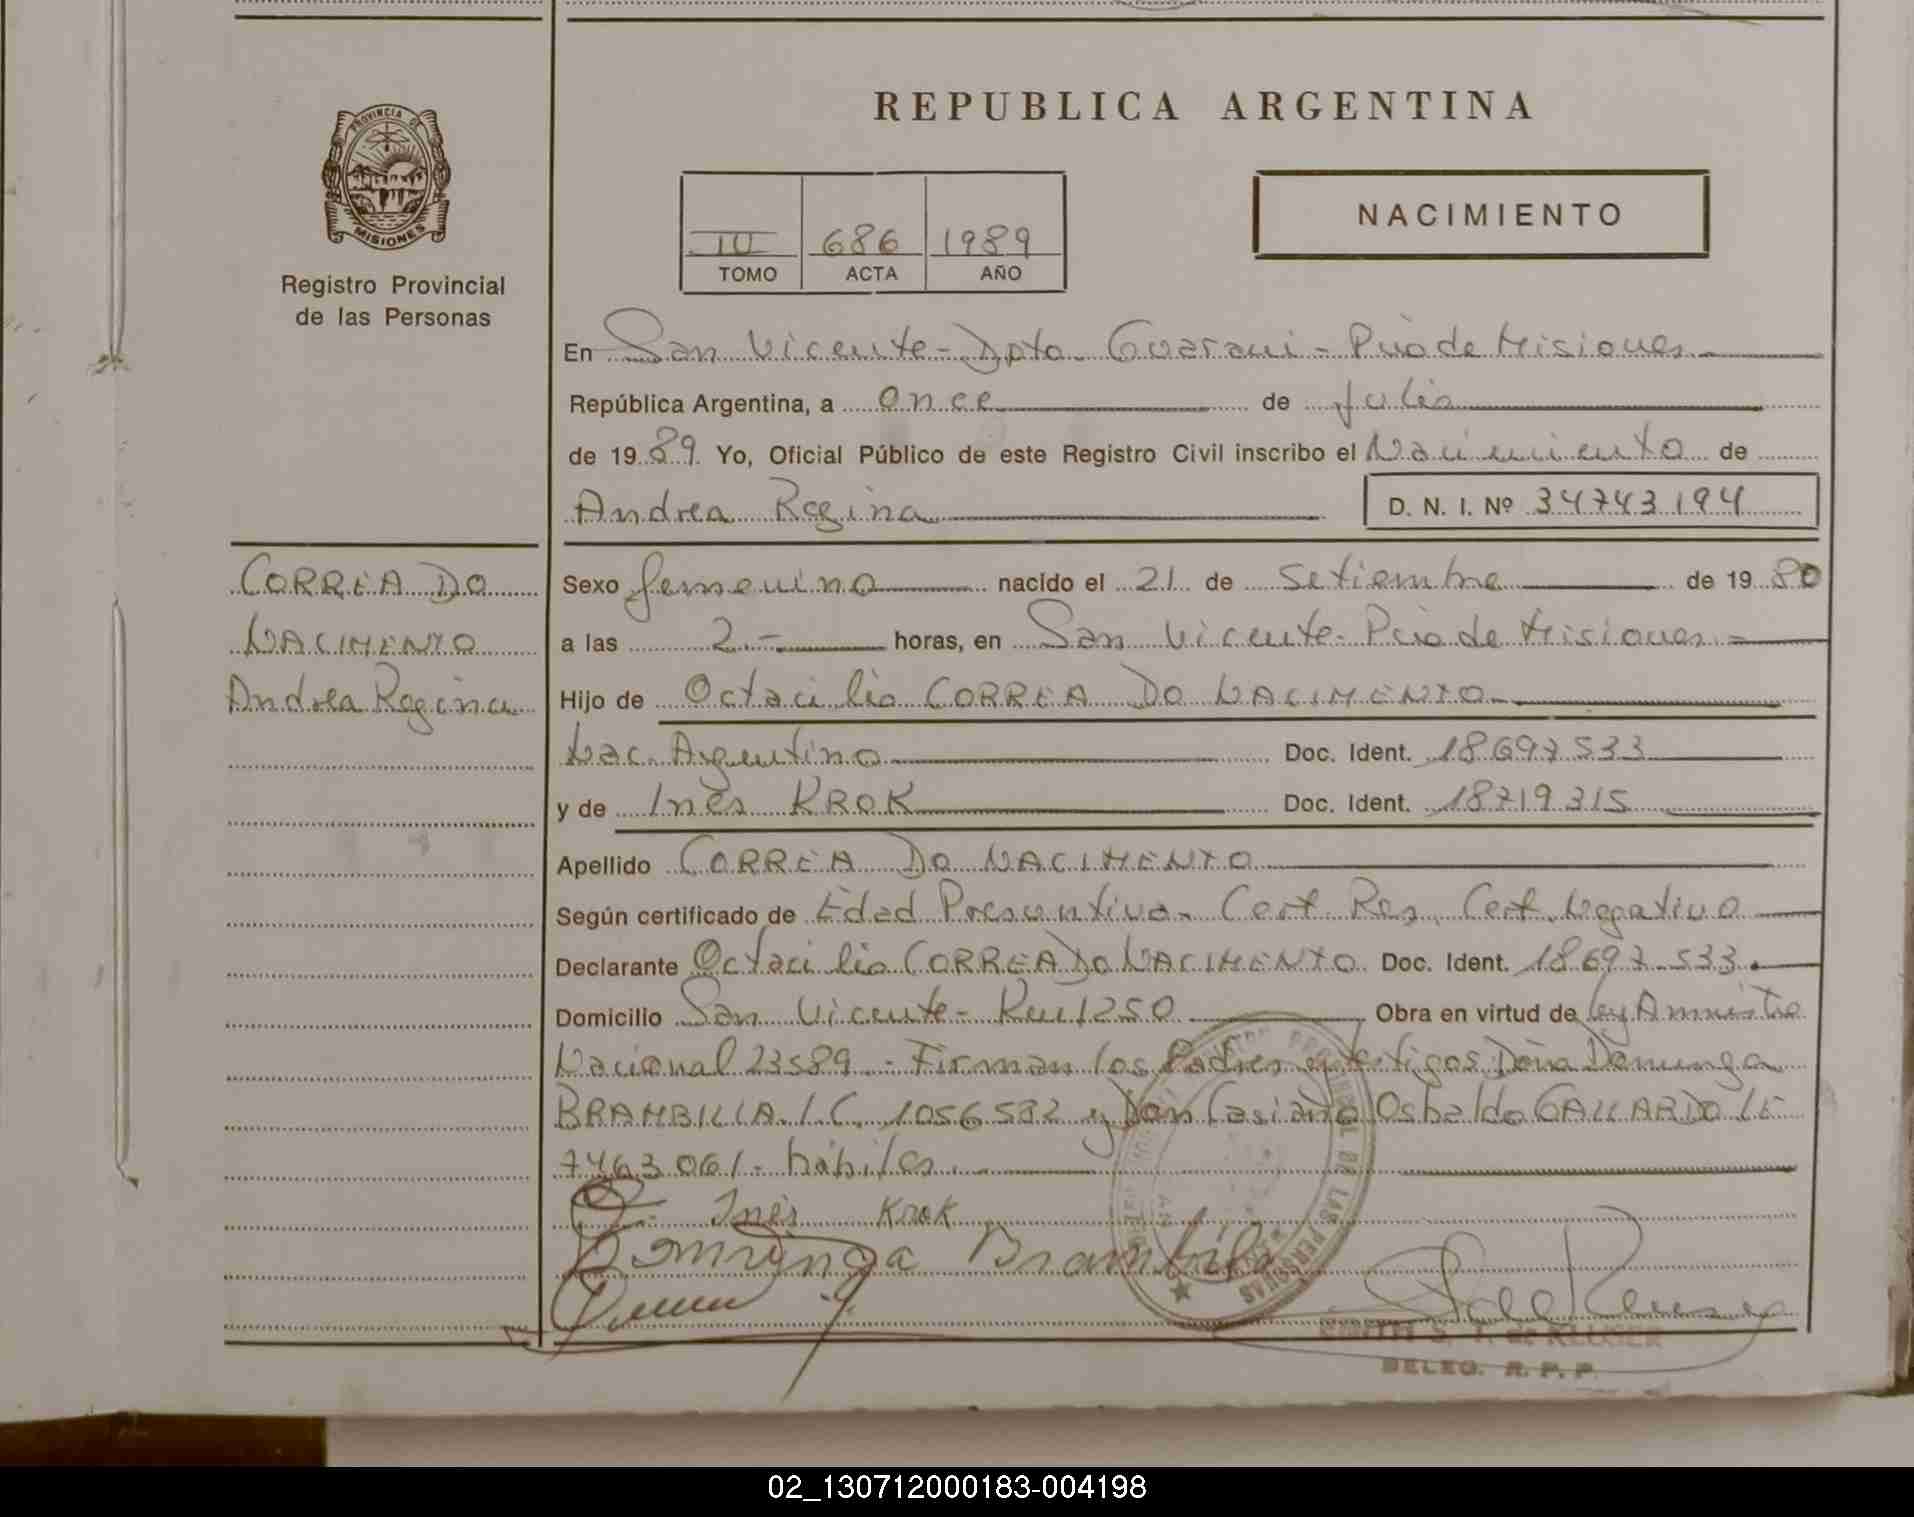 PROVINCIA DE
MISIONES
Registro Provincial
de las Personas
CORREA DO
NACIMENTO
Andrea Regina
REPUBLICA ARGENTINA
NACIMIENTO
III 686 1989
TOMO ACTA AÑO
En San Vicente - Dpto. Guarani - Pcio de Misiones
República Argentina, a once de julio
de 1989. Yo, Oficial Público de este Registro Civil inscribo el Nacimiento de
Andrea Regina D. N. I. Nº 34743194
Sexo femenino nacido el 21 de Setiembre de 1980
a las 2.- horas, en San Vicente - Pcio de Misiones -
Hijo de Octacilio CORREA DO NACIMENTO
Nac. Argentino Doc. Ident. 18697533
y de Inès KROK Doc. Ident. 18719315
Apellido CORREA DO NACIMENTO
Según certificado de Edad Presuntiva - Cert. Res. Cert. Negativo
Declarante Octacilio CORREA DO NACIMENTO Doc. Ident. 18697533.
Domicilio San Vicente - Km 1250 Obra en virtud de Ley Amnistia
Nacional 23589 - Firman los Padres y testigos Doña Dominga
BRAMBILLA L.C. 1056582 y Don Casiano Osbaldo GALLARDO LE
7463061 - hábiles.
Inès Krok
Dominga Brambila
EDITH S. T. de KLUSER
DELEG. R. P. P.
02_130712000183-004198